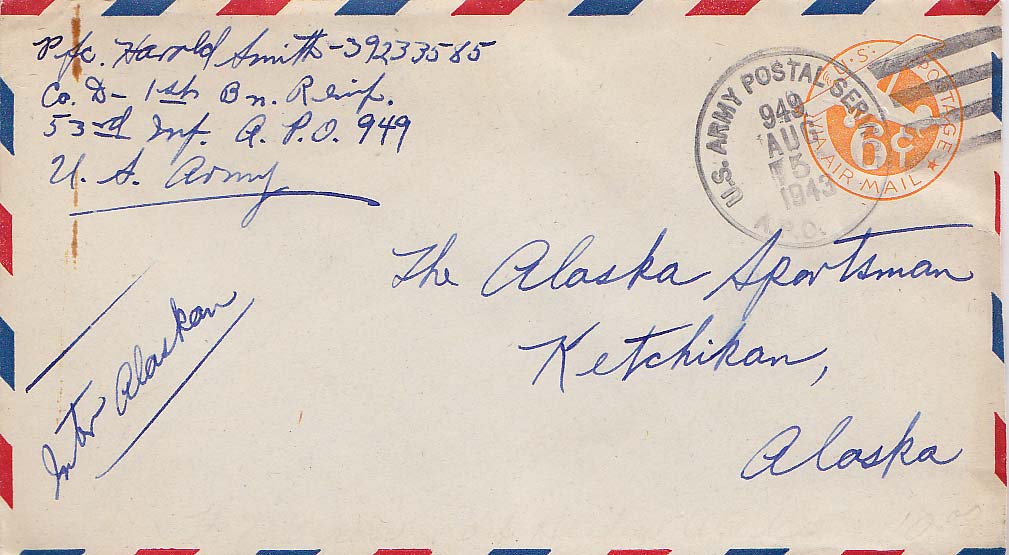 Pfc. Harold Smith-39233565
Co. D- 1st Bn. Reinf.
53rd Inf. A.P.O. 949
U.S. Army
U.S. ARMY POSTAL SERVICE
949
AUG
15
1943
A.P.O.
U.S. POSTAGE
6¢
VIA AIR MAIL
The Alaska Sportsman
Ketchikan,
Alaska
Inter Alaskan